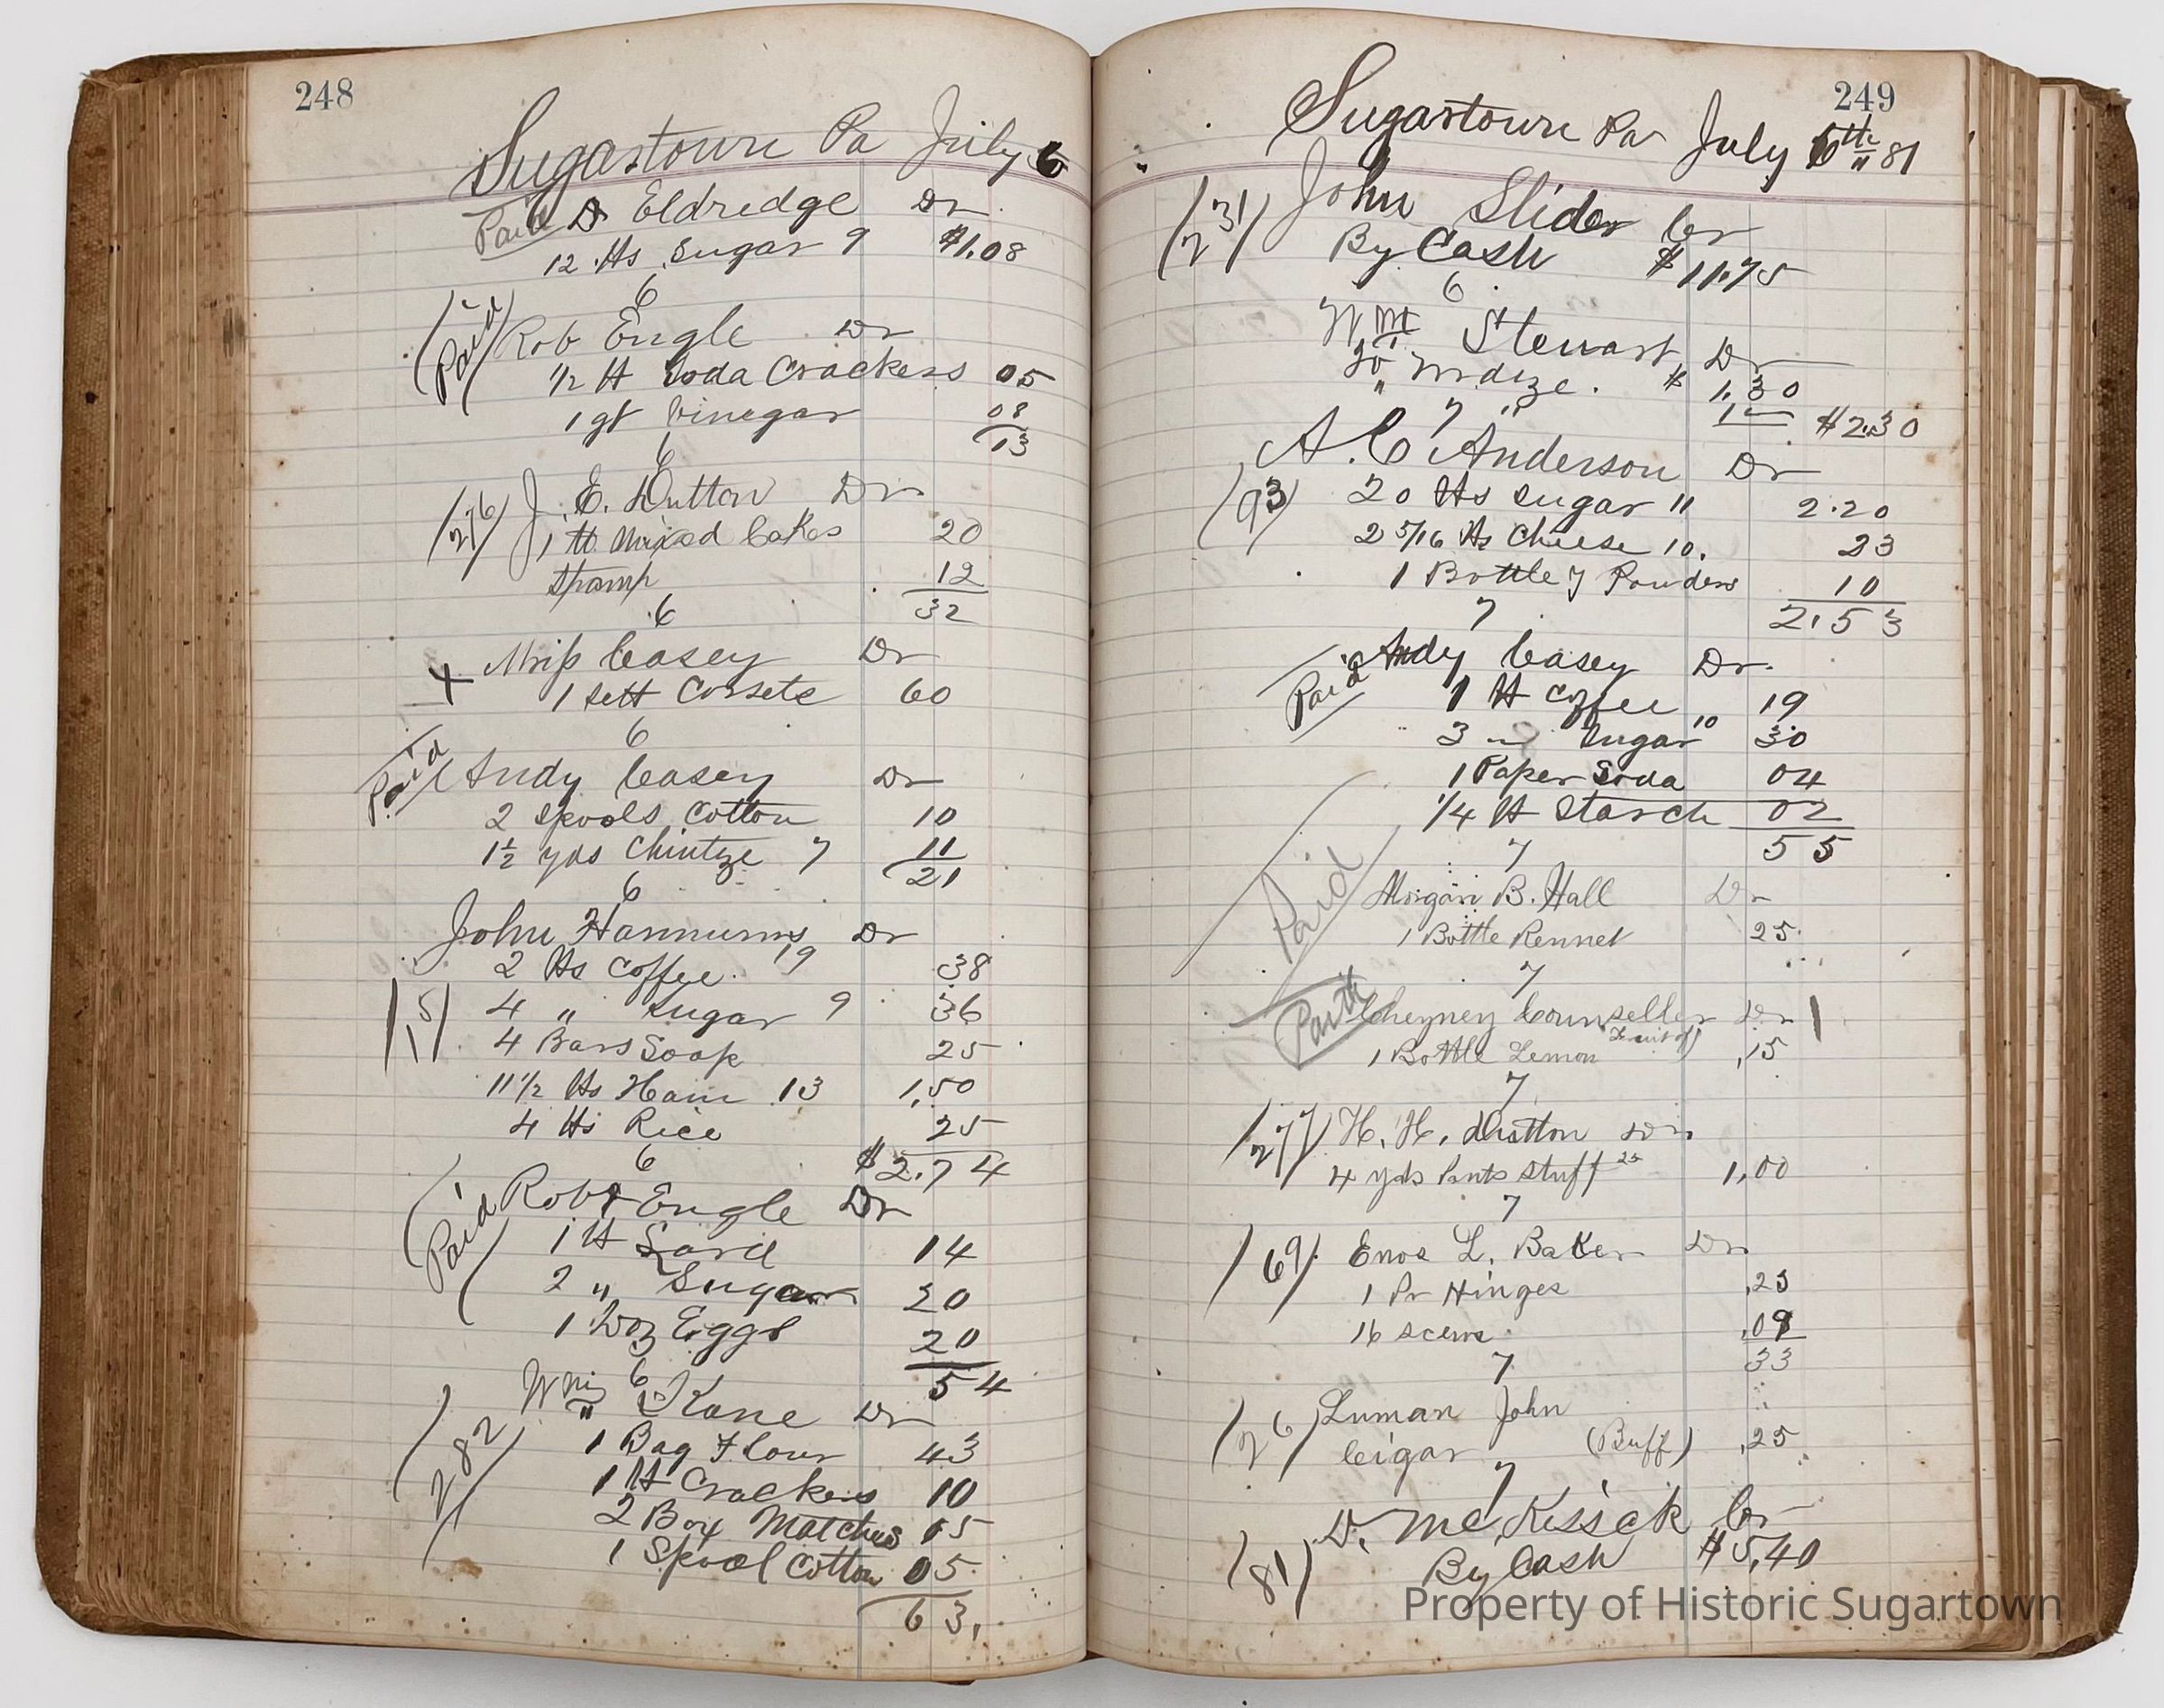 248
Sugartown Pa July 6
Paid D Eldredge Dr
12 lbs Sugar 9 $1.08
6
Paid Rob Engle Dr
1/2 lb Soda Crackers 05
1 qt Vinegar 08
13
6
276 J. E. Dutton Dr
1 lb Mixed Cakes 20
Stamp 12
32
6
Miss Casey Dr
1 sett Corsets 60
6
Paid Andy Casey Dr
2 Spools Cotton 10
1 1/2 yds Chintze 7 11
21
6
John Hannums Dr
2 lbs Coffee 19 38
15 4 " Sugar 9 36
4 Bars Soap 25
11 1/2 lbs Ham 13 1,50
4 lbs Rice 25
6 $2.74
Paid Robt Engle Dr
1 lb Lard 14
2 " Sugar 20
1 Doz Eggs 20
6 54
Wm Kane Dr
282 1 Bag Flour 43
1 lb Crackers 10
2 Box Matches 05
1 Spool Cotton 05
63,
249
Sugartown Pa July 6th 81
231 John Slider Cr
By Cash $11.75
6
Wm Stewart Dr
Maize. $1.30
1 — $2.30
7
A. C Anderson Dr
93 20 lbs Sugar 11 2.20
2 5/16 lbs Cheese 10. 23
1 Bottle Powders 10
7 2.53
Paid Andy Casey Dr.
1 lb Coffee 19
3 Sugar 10 30
1 Paper Soda 04
1/4 lb Starch 02
7 55
Paid Morgan B. Hall Dr
1 Bottle Rennet 25
7
Cheyney Counseller Dr
1 Bottle Lemon ,15
7
277 H. H. Dutton Dr
4 yds Pants Stuff 25 1,00
7
69 Enos L. Baker Dr
1 Pr Hinges ,25
16 Scews ,08
7 33
26 Luman John
Cigar (Buff) ,25
7
D. McKissick Cr
81 By Cash $5,40
Property of Historic Sugartown